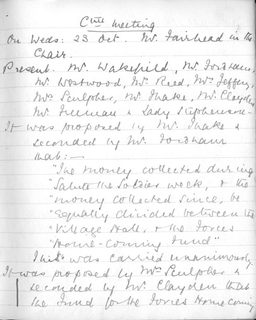 Cttee Meeting
On Weds: 23 Oct. Mr. Fairhead in the
Chair.
Present. Mr. Wakefield, Mr. Fordham,
Mr Westwood, Mr. Reed, Mr. Jeffery,
Mrs Pulpher, Mr. Thake, Mr. Clayden
Mr. Freeman & Lady Stephenson.
It was proposed by Mr. Thake &
seconded by Mr. Fordham
that:—
"The money collected during
"Salute the Soldier week, & the
"money collected since, be
"equally divided between the
"Village Hall, & the Forces
"Home-Coming Fund"
This was carried unanimously
It was proposed by Mrs. Pulpher &
seconded by Mr. Clayden that
the Fund for the Forces Home coming